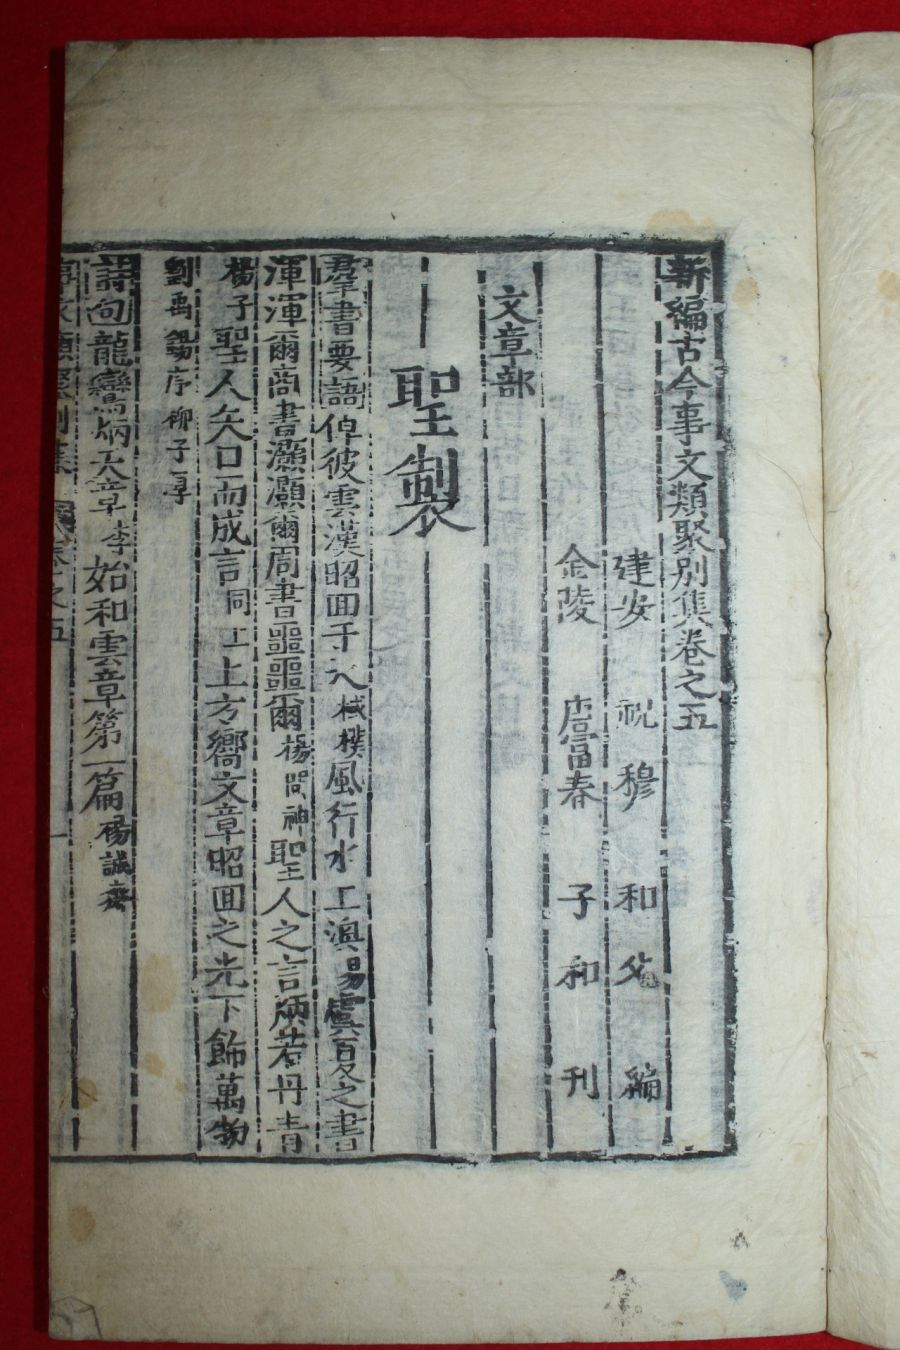 新編古今事文類聚別集卷之五
建安 祝穆 和父 編
金陵 唐富春 子和 刊
文章部
聖製
羣書要語倬彼雲漢昭回于天棫樸風行水上渙易虞夏之書
渾渾爾商書灝灝爾周書噩噩爾楊問神聖人之言炳若丹青
楊子聖人矢口而成言同上上方嚮文章昭回之光下飾萬物
劉禹錫序柳子厚
詩句龍鸞炳天章李始和雲章第一篇楊誠齋
事文類聚別集 卷之五 一